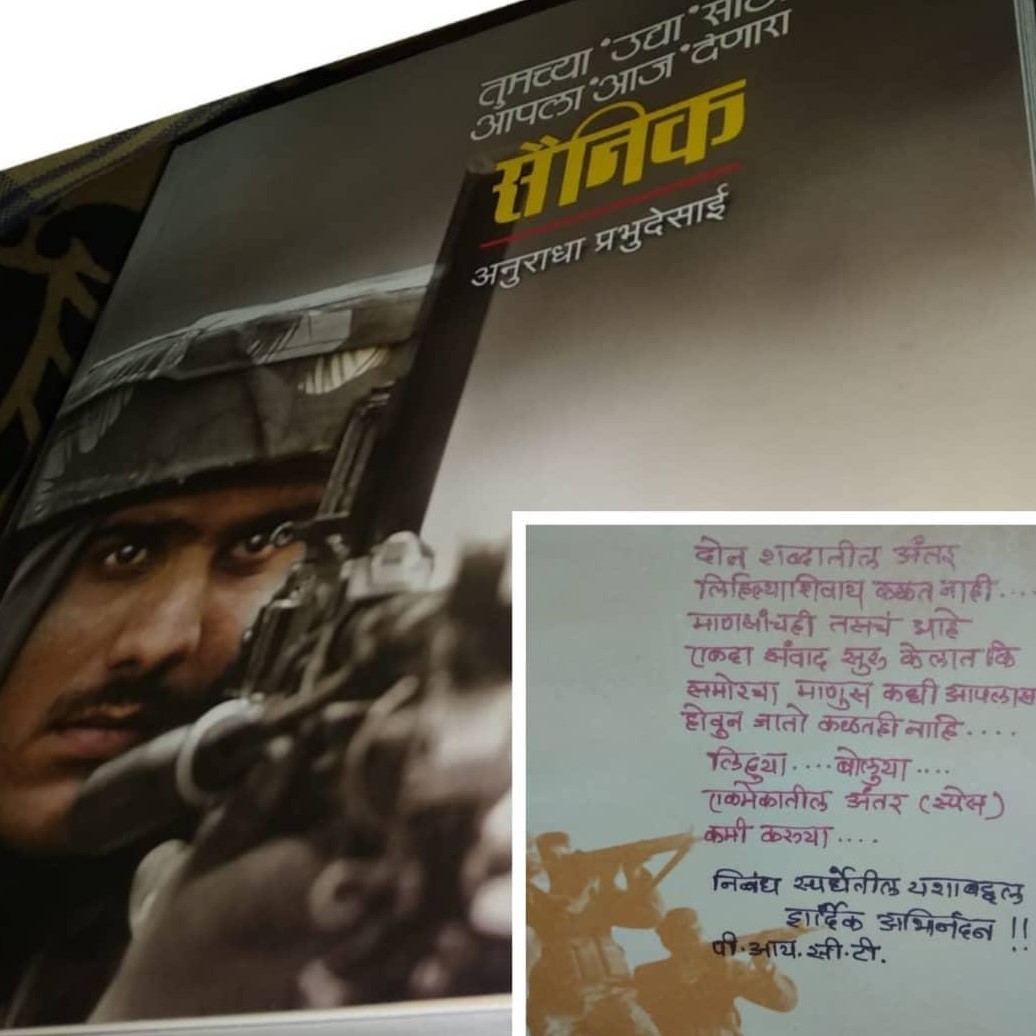 तुमच्या 'उद्या' साठी
आपला 'आज' देणारा
सैनिक
अनुराधा प्रभुदेसाई
दोन शब्दातील अंतर
लिहिल्याशिवाय कळत नाही....
माणसांचही तसचं आहे
एकदा संवाद सुरु केलात कि
समोरचा माणुस कधी आपलासा
होवुन जातो कळतही नाहि....
लिहूया.... बोलूया....
एकमेकातील अंतर (स्पेस)
कमी करुया....
निबंध स्पर्धेतील यशाबद्दल
हार्दिक अभिनंदन !!
पी.आय.सी.टी.